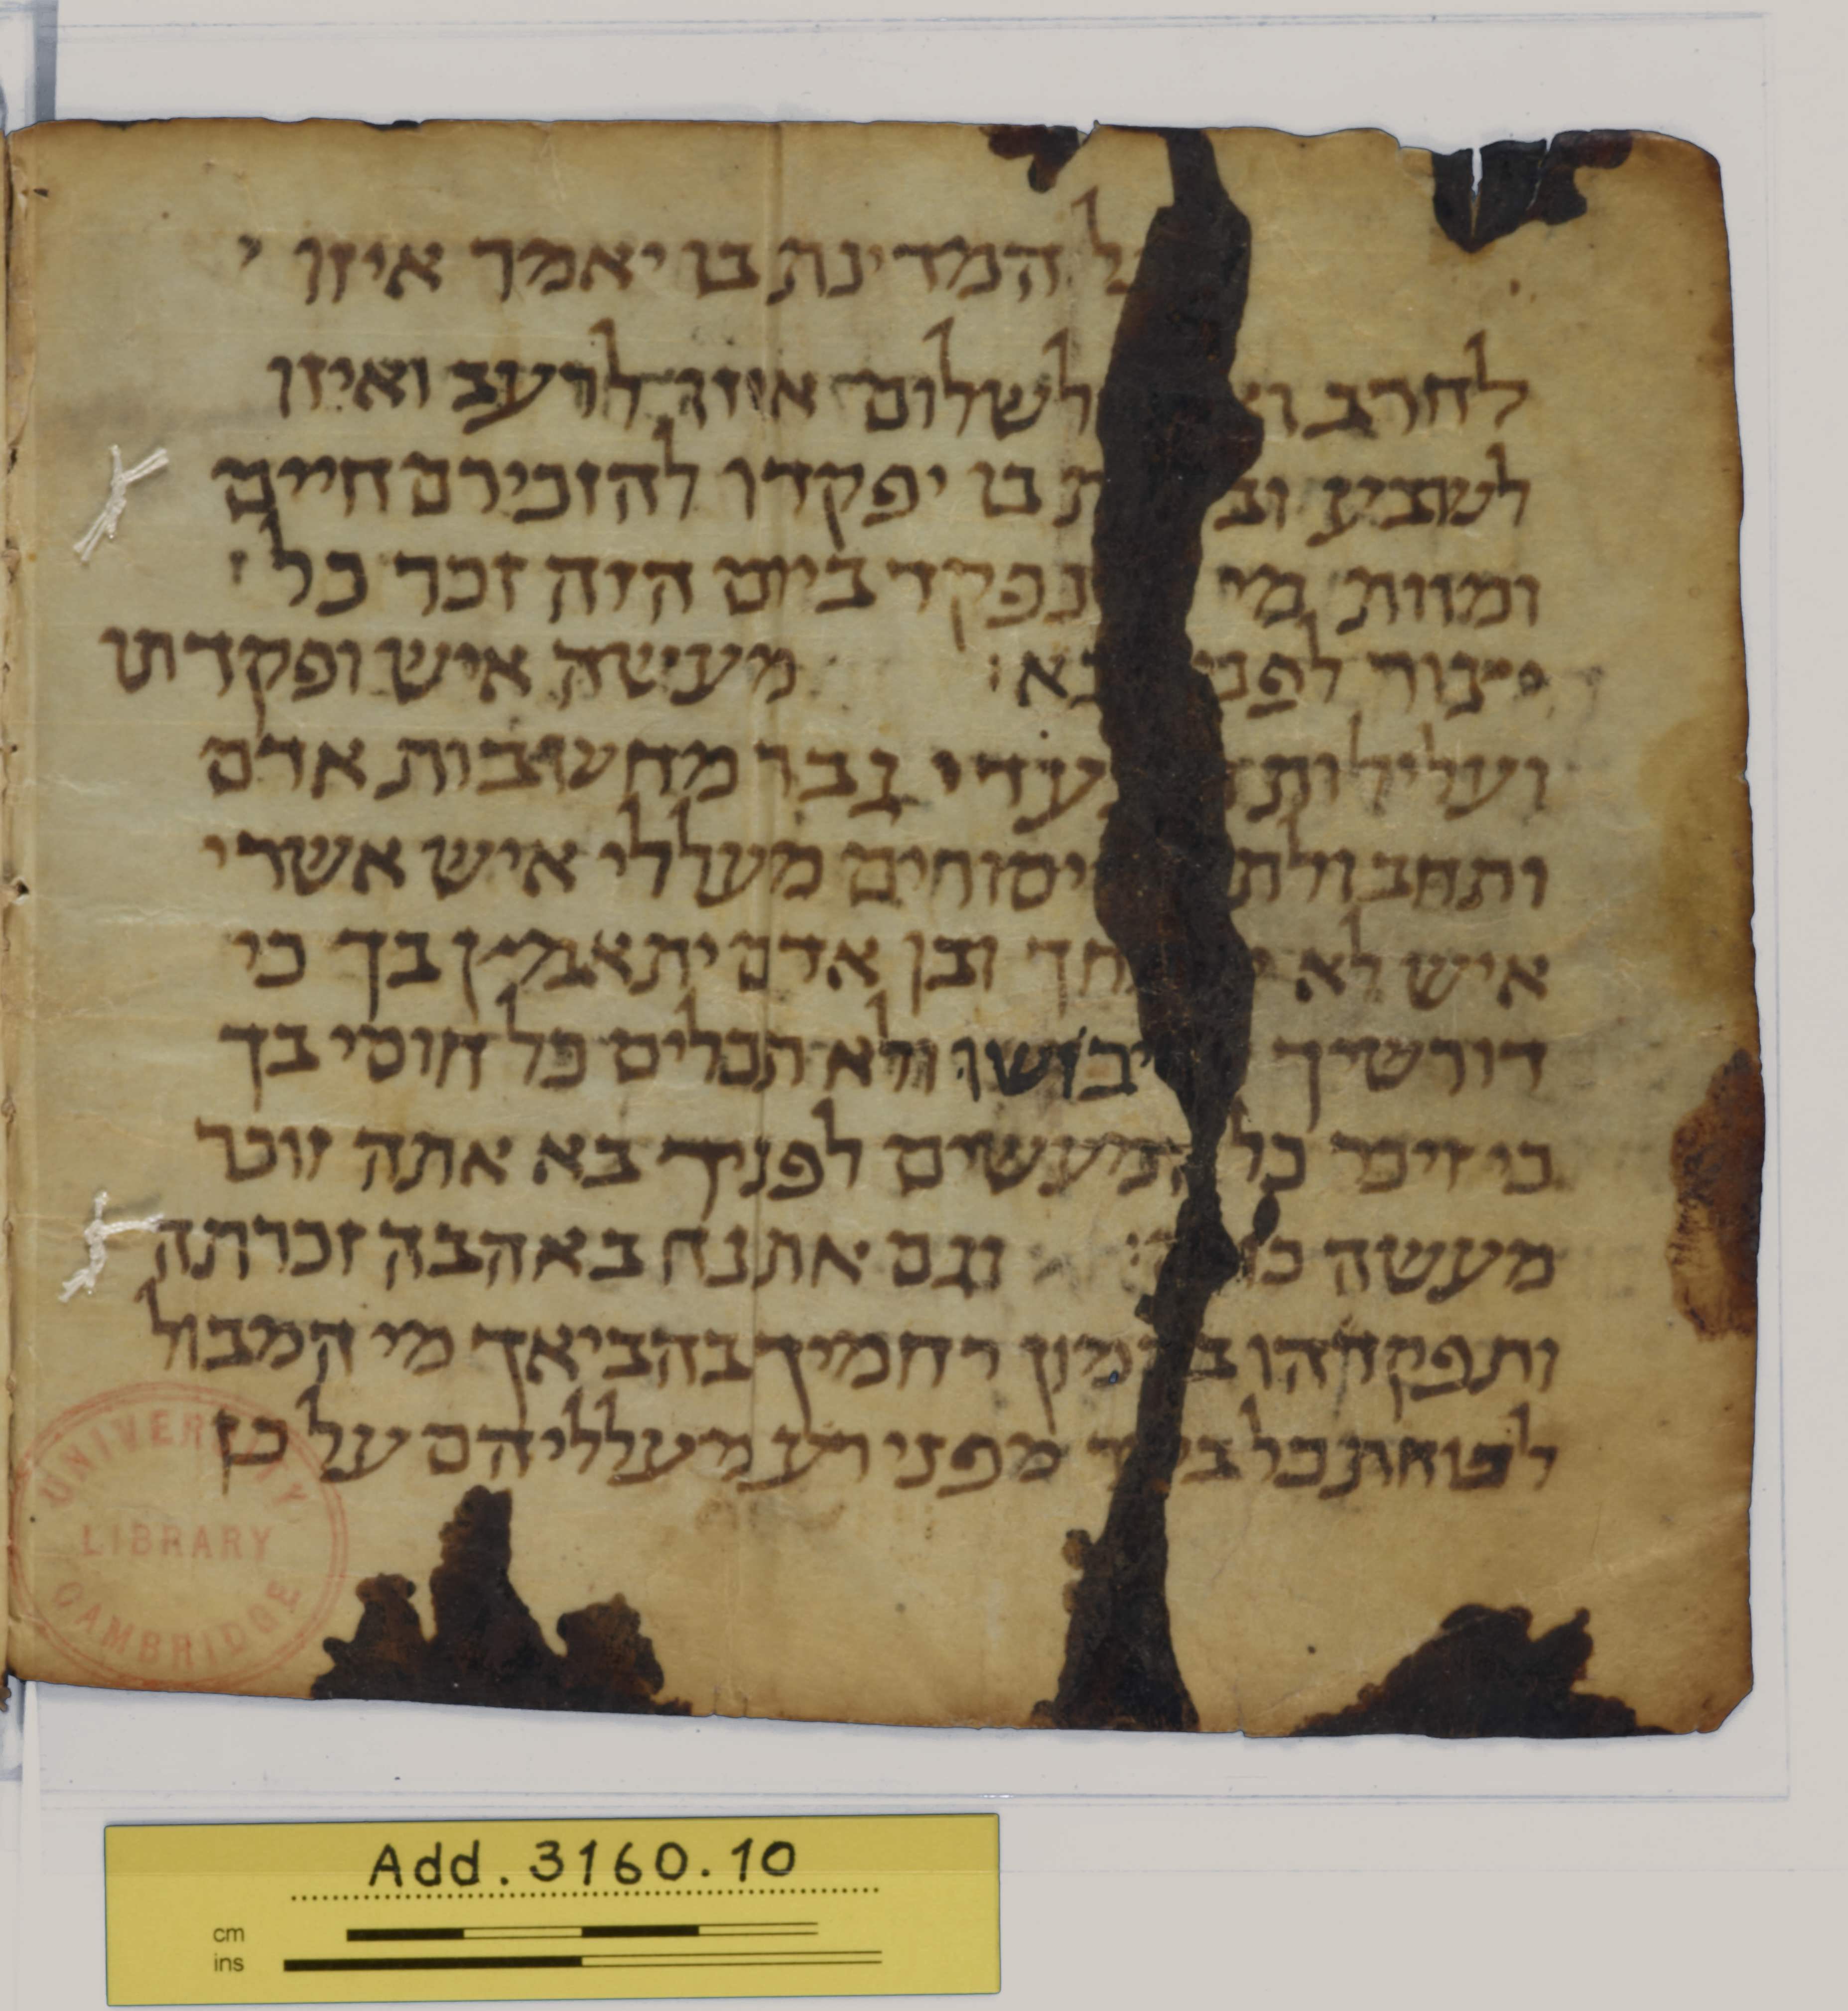 כל המדינת בו יאמר איזו
לחרב לשלום איזו לרעב ואיזו
לשבע בו יפקדו להזכירם חיים
ומוות מי נפקד ביום הזה זכר כל
יצור לפני בא מעשה איש ופקדתו
ועלילות מצעדי גבר מחשבות אדם
ותחבולתיו מעללי איש אשרי
איש לא ובן אדם יתאמץ בך כי
דורשיך יבושו ולא תכלים כל חוסי בך
כי זיכר כל המעשים לפניך בא אתה זוכר
מעשה וגם את נח באהבה זכרתה
ותפקדהו בהמון רחמיך בהביאך מי המבול
לשחת כל בשר מפני רע מעלליהם על כן
UNIVERSITY
LIBRARY
CAMBRIDGE
Add. 3160.10
cm
ins